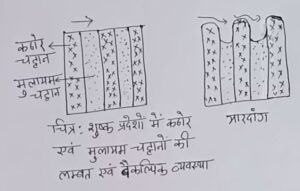 कठोर
चट्टान
मुलायम
चट्टान
यारदांग
चित्र: शुष्क प्रदेशों में कठोर
एवं मुलायम चट्टानों की
लम्बवत एवं वैकल्पिक व्यवस्था